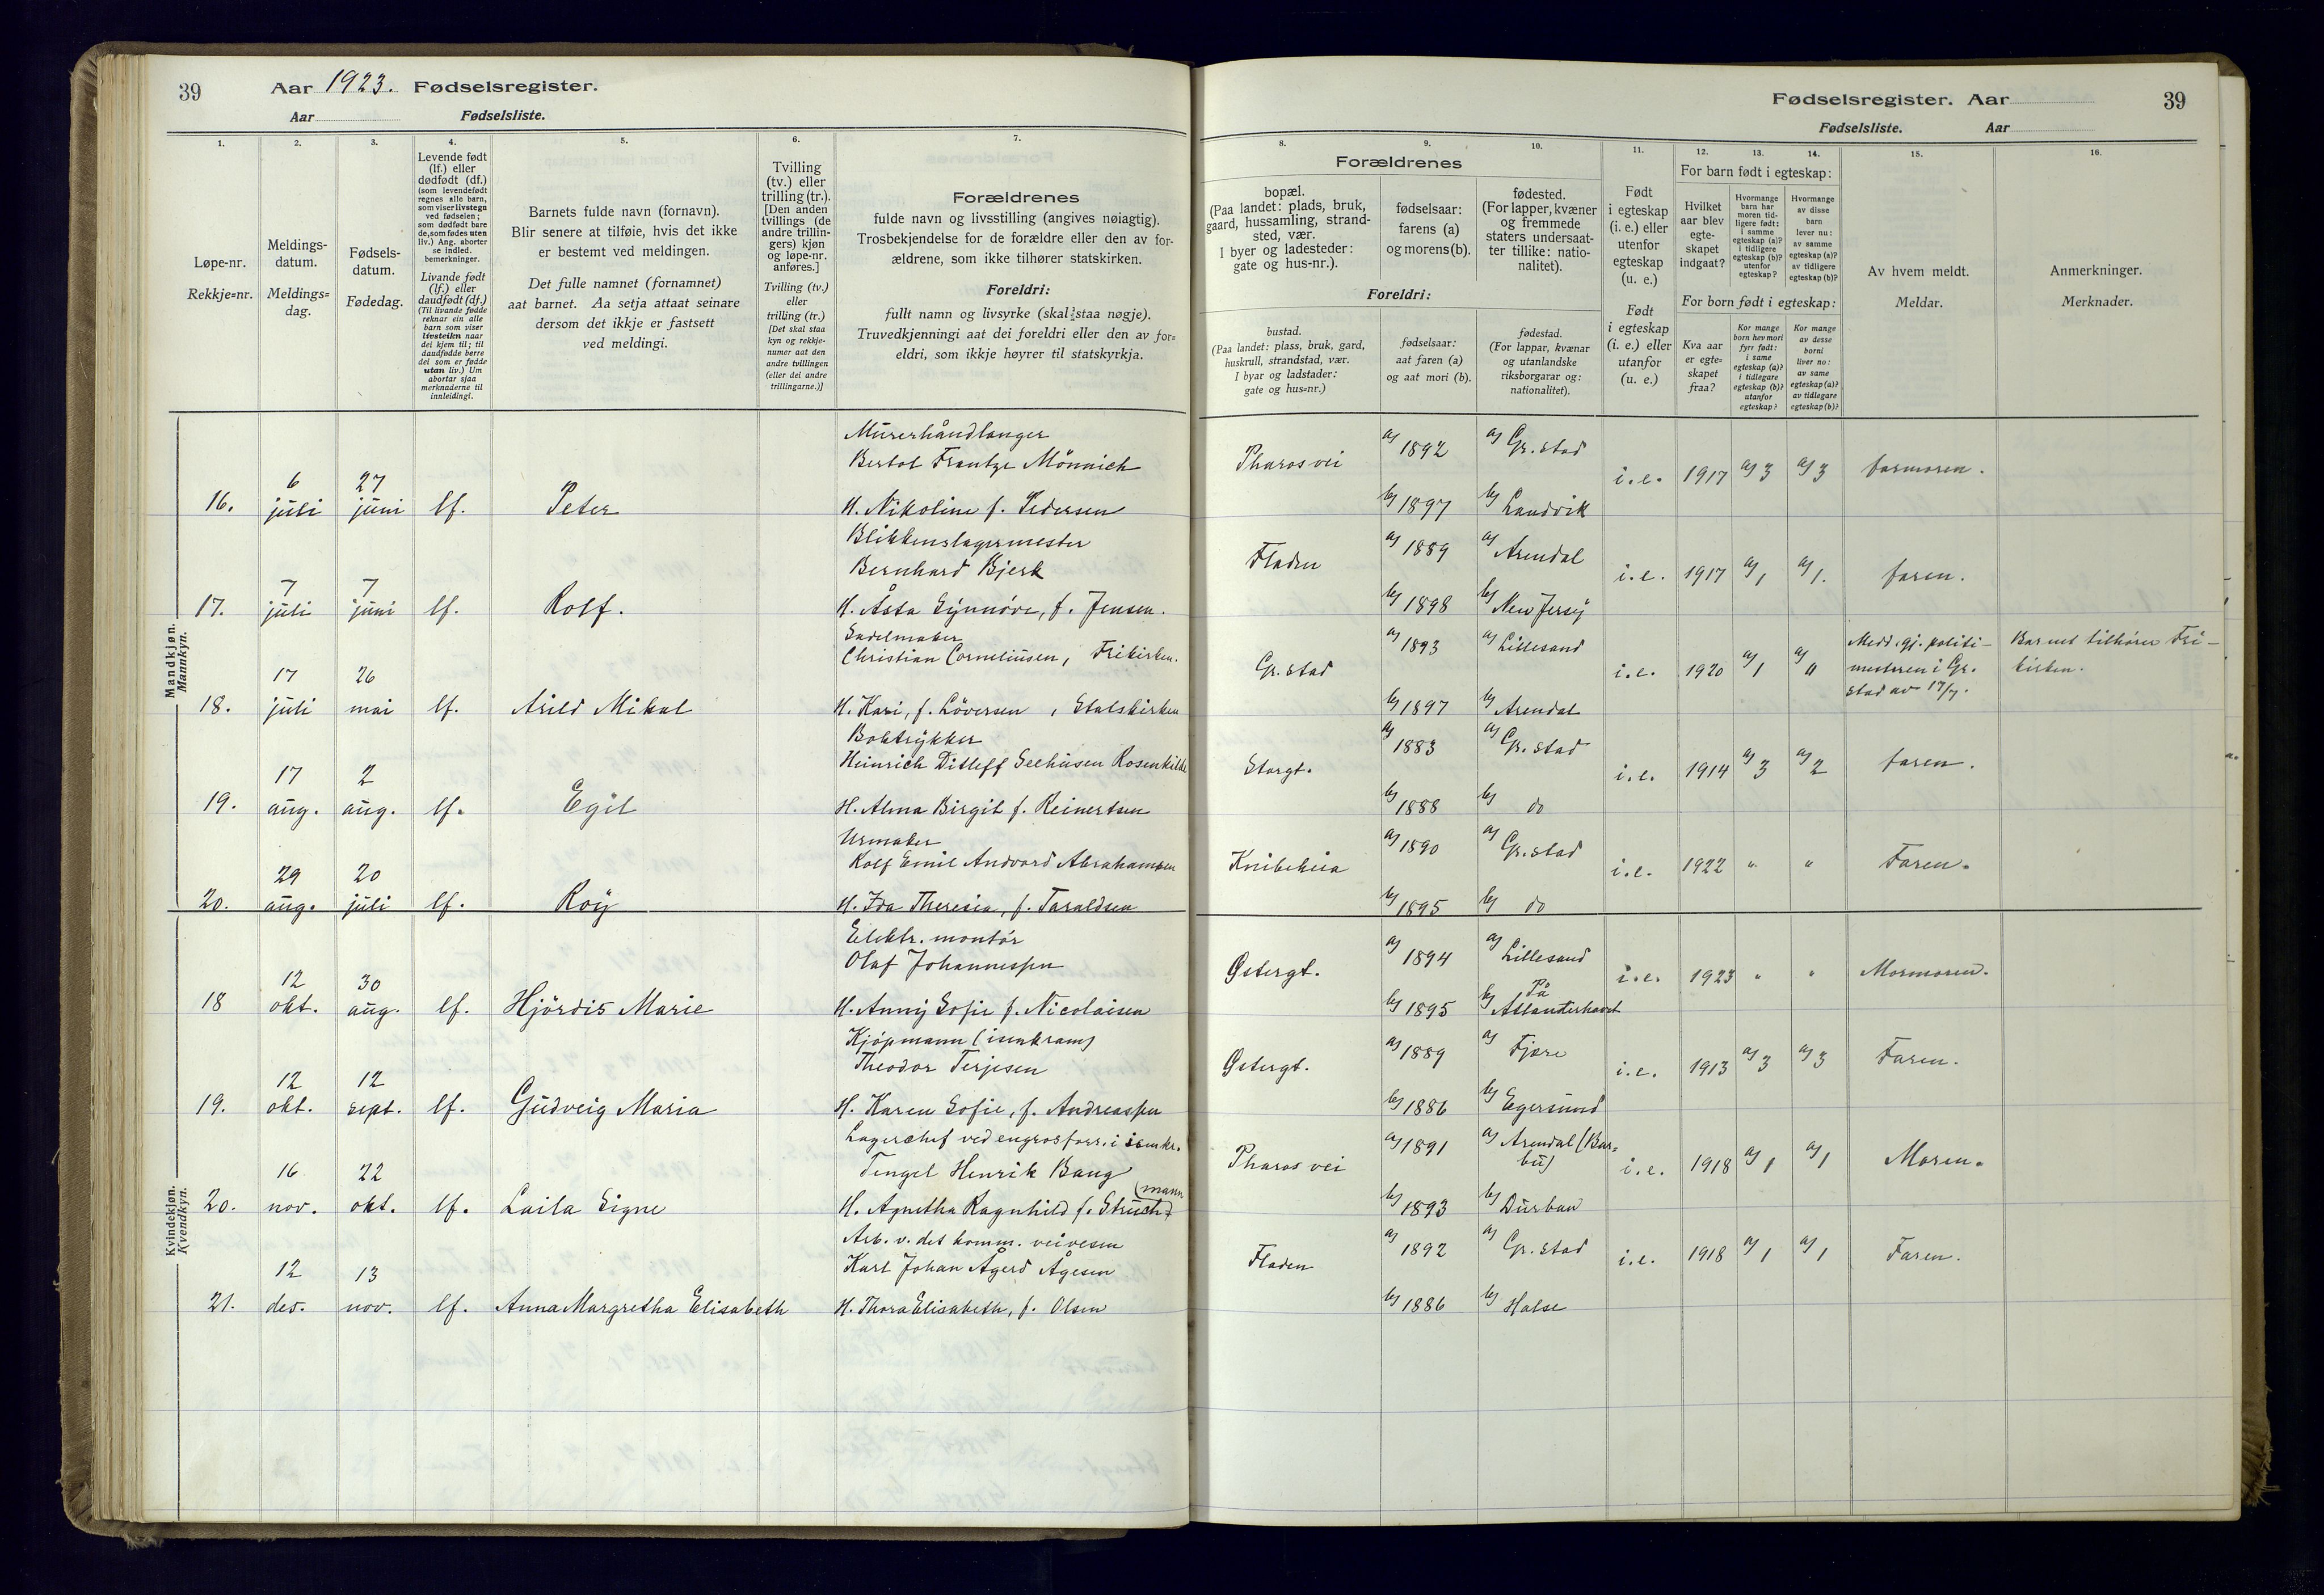 39 Aar 1923. Fødselsregister.
Aar Fødselsliste.
Fødselsregister. Aar 39
Fødselsliste. Aar
1.
Løpe-nr.
Rekkje=nr.
2.
Meldings-
datum.
Meldings=
dag.
3.
Fødsels-
datum.
Fødedag.
4.
Levende født
(lf.) eller
dødfødt (df.)
(som levendefødt
regnes alle barn,
som viser livstegn
ved fødselen;
som dødfødt bare
de, som fødes uten
liv.) Ang. aborter
se indled.
bemerkninger.
Livande født
(lf.) eller
daudfødt (df.)
(Til livande fødde
reknar ein alle
barn som viser
livsteikn naar
dei kjem til; til
daudfødde berre
dei som er fødde
utan liv.) Um
abortar sjaa
merknaderne til
innleidingi.
5.
Barnets fulde navn (fornavn).
Blir senere at tilføie, hvis det ikke
er bestemt ved meldingen.
Det fulle namnet (fornamnet)
aat barnet. Aa setja attaat seinare
dersom det ikkje er fastsett
ved meldingi.
6.
Tvilling
(tv.) eller
trilling (tr.).
[Den anden
tvillings (de
andre trillin-
gers) kjøn
og løpe-nr.
anføres.]
Tvilling (tv.)
eller
trilling (tr.)
[Det skal staa
kyn og rekkje-
numer aat den
andre tvillingen
(eller dei andre
trillingarne.)]
7.
Forældrenes
fulde navn og livsstilling (angives nøiagtig).
Trosbekjendelse for de forældre eller den av for-
ældrene, som ikke tilhører statskirken.
Foreldri:
fullt namn og livsyrke (skal staa nøgje).
Truvedkjenningi aat dei foreldri eller den av for=
eldri, som ikkje høyrer til statskyrkja.
8. 9. 10.
Forældrenes
bopæl.
(Paa landet: plads, bruk,
gaard, hussamling, strand-
sted, vær.
I byer og ladesteder:
gate og hus-nr.).
fødselsaar:
farens (a)
og morens (b).
fødested.
(For lapper, kvæner
og fremmede
staters undersaat-
ter tillike: natio-
nalitet).
Foreldri:
bustad.
(Paa landet: plass, bruk, gard,
huskrull, strandstad, vær.
I byar og ladstader:
gate og hus=nr.)
fødselsaar:
aat faren (a)
og aat mori (b).
fødestad.
(For lappar, kvænar
og utanlandske
riksborgarar og:
nationalitet).
11.
Født
i egteskap
(i. e.) eller
utenfor
egteskap
(u. e.)
Født
i egteskap
(i. e.) eller
utanfor
(u. e.)
12. 13. 14.
For barn født i egteskap:
Hvilket
aar blev
egte-
skapet
indgaat?
Hvormange
barn har
moren tid-
ligere født:
i samme
egteskap (a)?
i tidligere
egteskap (b)?
utenfor
egteskap?
Hvormange
av disse
barn
lever nu:
av samme
egteskap (a)?
av tidligere
egteskap (b)?
For born født i egteskap:
Kva aar
er egte=
skapet
fraa?
Kor mange
born hev mori
fyrr født:
i same
egteskap (a)?
i tidlegare
egteskap (b)?
utanfor
egteskap?
Kor mange
av desse
borni
liver no:
av same
egteskap (a)?
av tidlegare
egteskap (b)?
15.
Av hvem meldt.
Meldar.
16.
Anmerkninger.
Merknader.
Mandkjøn.
Mannkyn.
Murerhåndlanger
Bertol Frantze Mönnich
16. 6 juli 27 juni lf. Peter H. Nikoline f. Pedersen
Pharosvei a) 1892 a) Gr.stad i.e. 1917 a) 3 a) 3 farmoren.
b) 1897 b) Landvik
Blikkenslagermester
Bernhard Bjerk
17. 7 juli 7 juni lf. Rolf. H. Åsta Synnöve, f. Jensen.
Fladen a) 1889 a) Arendal i.e. 1917 a) 1 a) 1. faren.
b) 1898 b) New Jersy
Sadelmaker
Christian Corneliusen, Frikirken.
18. 17 juli 26 mai lf. Arild Mikal H. Kari, f. Löversen, Statskirken
Gr.stad a) 1893 a) Lillesand i.e. 1920 a) 1 a) " Medd. gj. politi-
mesteren i Gr.
stad av 17/7. Barnet tilhörer Fri-
kirken.
b) 1897 b) Arendal
Boktrykker
Heinrich Ditleff Seehusen Rosenkilde
19. 17 aug. 2 aug. lf. Egil H. Alma Birgit f. Reinertsen
Storgt. a) 1883 a) Gr.stad i.e. 1914 a) 3 a) 2 faren.
b) 1888 b) do
Urmaker
Rolf Emil Andvord Abrahamsen
20. 29 aug. 20 juli lf. Roy H. Ida Theresia, f. Taraldsen
Knibekeia a) 1890 a) Gr.stad i.e. 1922 " " Faren.
b) 1895 b) do
Kvindekjøn.
Kvendkyn.
Elektr. montör
Olaf Johannessen
18 12 okt. 30 aug. lf. Hjördis Marie H. Anny Sofie f. Nicolaisen
Østergt. a) 1894 a) Lillesand i.e. 1923 " " Mormoren.
b) 1895 b) På Atlanterhavet
Kjöpmann (isenkram)
Theodor Terjesen
19. 12 okt. 12 sept. lf. Gudveig Maria H. Karen Sofie, f. Andreassen
Østergt. a) 1889 a) Fjære i.e. 1913 a) 3 a) 3 Faren.
b) 1886 b) Egersund
Lagerchef ved engrosforr. i isenkr.
Tengel Henrik Bang
20. 16 nov. 22 okt. lf. Laila Signe H. Agnetha Ragnhild f. Struck(mann
Pharosvei a) 1891 a) Arendal (Bar=
bu) i.e. 1918 a) 1 a) 1 Moren.
b) 1893 b) Durban
Arb. v. det komm. veivesen
Karl Johan Ågerd Ågesen
21. 12 des. 13 nov. lf. Anna Margretha Elisabeth H. Thora Elisabeth, f. Olsen
Fladen a) 1892 a) Gr.stad i.e. 1918 a) 1 a) 1 Faren.
b) 1886 b) Halse